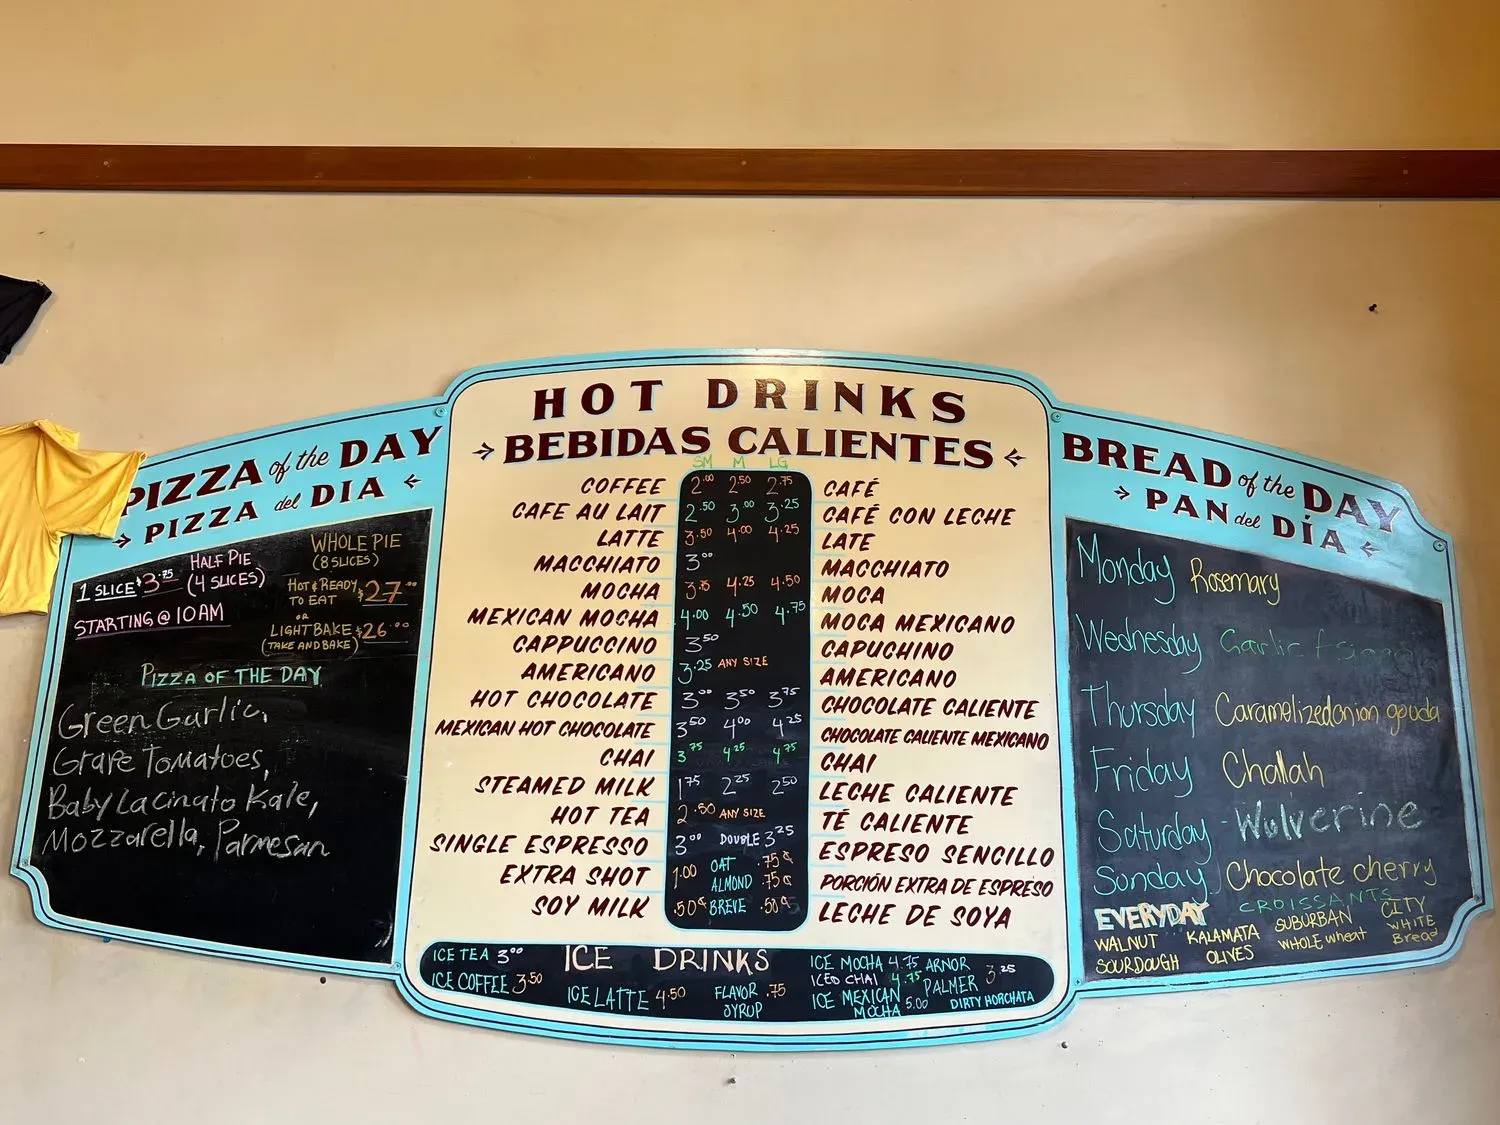 PIZZA of the DAY
PIZZA del DIA
1 SLICE $3.75
HALF PIE
(4 SLICES)
STARTING @ 10AM
WHOLE PIE
(8 SLICES)
HOT & READY
TO EAT $27.00
OR
LIGHT BAKE $26.00
(TAKE AND BAKE)
PIZZA OF THE DAY
Green Garlic,
Grape Tomatoes,
Baby Lacinato Kale,
Mozzarella, Parmesan
HOT DRINKS
BEBIDAS CALIENTES
SM M LG
COFFEE 2.00 2.50 2.75 CAFÉ
CAFE AU LAIT 2.50 3.00 3.25 CAFÉ CON LECHE
LATTE 3.50 4.00 4.25 LATE
MACCHIATO 3.00 MACCHIATO
MOCHA 3.75 4.25 4.50 MOCA
MEXICAN MOCHA 4.00 4.50 4.75 MOCA MEXICANO
CAPPUCCINO 3.50 CAPUCHINO
AMERICANO 3.25 ANY SIZE AMERICANO
HOT CHOCOLATE 3.00 3.50 3.75 CHOCOLATE CALIENTE
MEXICAN HOT CHOCOLATE 3.50 4.00 4.25 CHOCOLATE CALIENTE MEXICANO
CHAI 3.75 4.25 4.75 CHAI
STEAMED MILK 1.75 2.25 2.50 LECHE CALIENTE
HOT TEA 2.50 ANY SIZE TÉ CALIENTE
SINGLE ESPRESSO 3.00 DOUBLE 3.25 ESPRESO SENCILLO
EXTRA SHOT 1.00 OAT .75¢ ALMOND .75¢ PORCIÓN EXTRA DE ESPRESO
SOY MILK .50¢ BREVE .50¢ LECHE DE SOYA
ICE DRINKS
ICE TEA 3.00
ICE COFFEE 3.50
ICE LATTE 4.50
FLAVOR .75
SYRUP
ICE MOCHA 4.75
ICED CHAI 4.75
ICE MEXICAN
MOCHA 5.00
ARNOR
PALMER 3.25
DIRTY HORCHATA
BREAD of the DAY
PAN del DÍA
Monday Rosemary
Wednesday Garlic
Thursday Caramelized onion gouda
Friday Challah
Saturday - Wolverine
Sunday Chocolate cherry
CROISSANTS
EVERYDAY
WALNUT
SOURDOUGH
KALAMATA
OLIVES
SUBURBAN
WHOLE wheat
CITY
WHITE
Bread